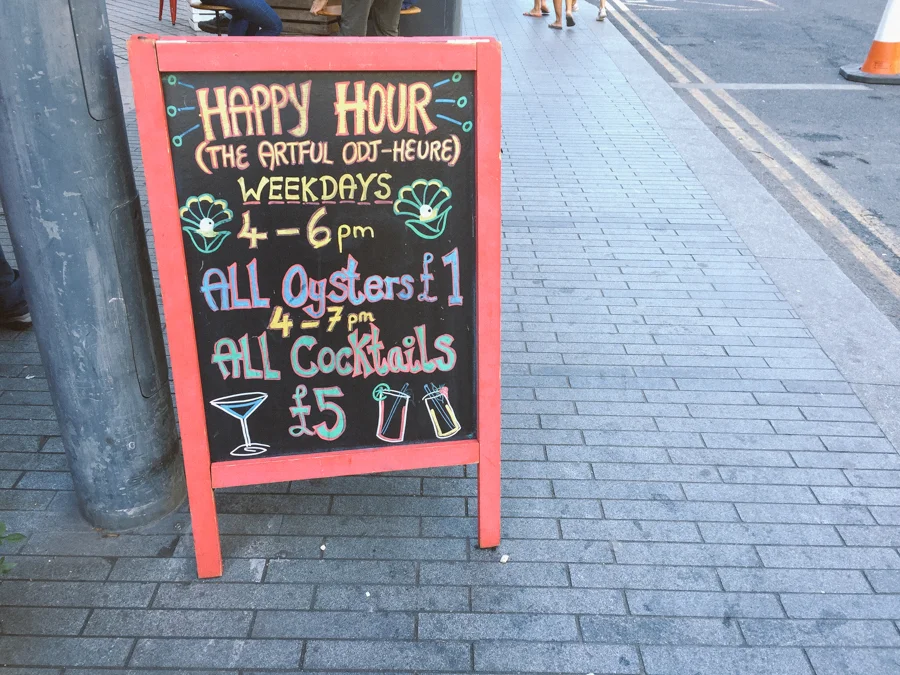 HAPPY HOUR
(THE ARTFUL ODJ-HEURE)
WEEKDAYS
4-6pm
ALL Oysters £1
4-7pm
ALL Cocktails
£5